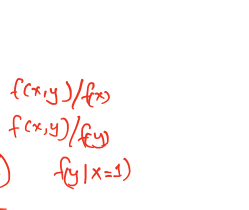 f(x,y)/f(x)
f(x,y)/f(y)
) f(y|x=1)